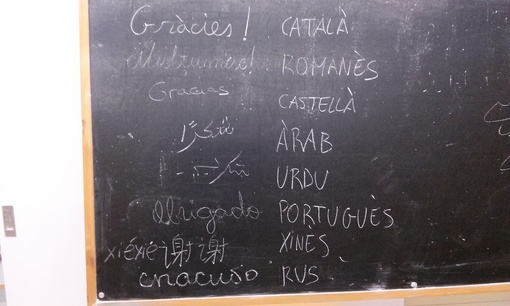 Gràcies! CATALÀ
Multumesc ROMANÈS
Gracias CASTELLÀ
شكرًا ÀRAB
URDU
Obrigado PORTUGUÈS
xièxiè 谢谢 XINÈS
спасибо RUS